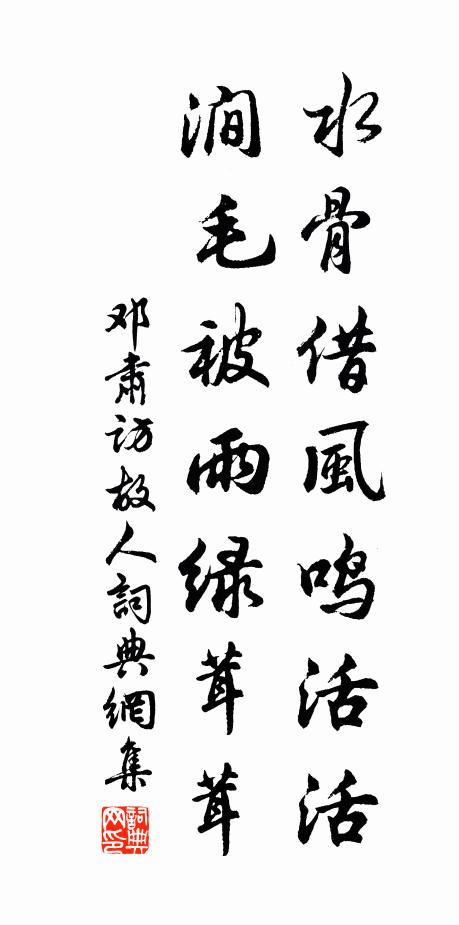 水骨借風鸣活活
涧毛被雨绿茸茸
邓肅访故人詞典網集
詞典网印